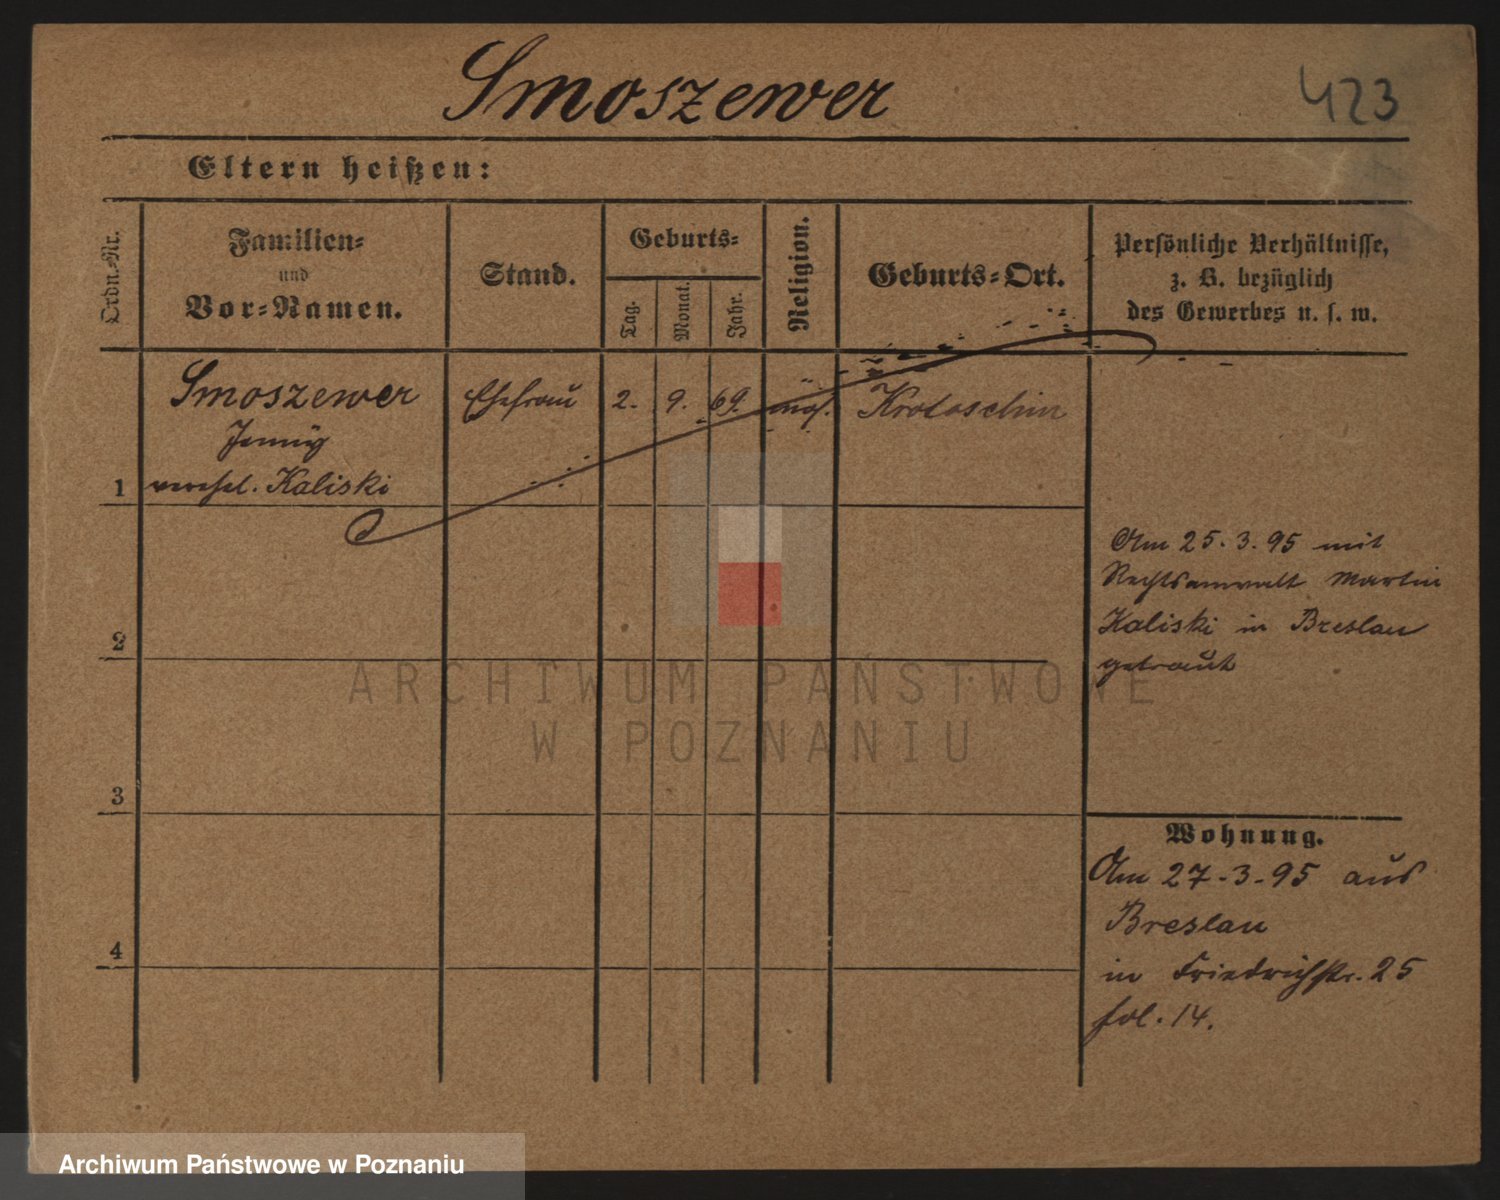 Smoszewer
423
Eltern heißen:
Ordn.-Nr.
Familien-
und
Vor-Namen.
Stand.
Geburts-
Tag.
Monat.
Jahr.
Religion.
Geburts-Ort.
Persönliche Verhältnisse,
z. B. bezüglich
des Gewerbes u. s. w.
Smoszewer
Jenny
verehel. Kaliski
1
Ehefrau
2.
9.
69.
mos.
Krotoschin
Am 25.3.95 mit
Rechtsanwalt Martin
Kaliski in Breslau
getraut
2
3
4
Wohnung.
Am 27-3-95 aus
Breslau
in Friedrichstr. 25
fol. 14.
ARCHIWUM PAŃSTWOWE
W POZNANIU
Archiwum Państwowe w Poznaniu